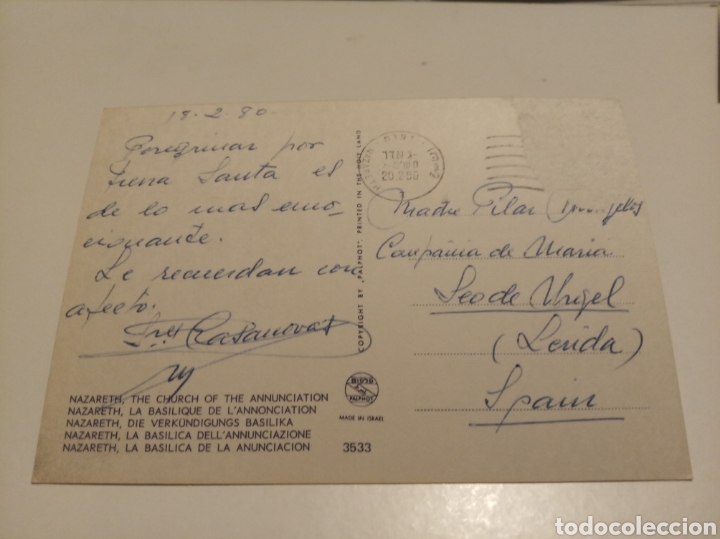 18-2-80
Peregrinar por
Tierra Santa es
de lo mas emo-
cionante.
Le recuerdan con
afecto.
Sres Casanovas
COPYRIGHT BY "PALPHOT", PRINTED IN THE HOLY LAND
20.2.80
Madre Pilar
Compañia de Maria
Seo de Urgel
(Lerida)
Spain
PALPHOT
MADE IN ISRAEL
NAZARETH, THE CHURCH OF THE ANNUNCIATION
NAZARETH, LA BASILIQUE DE L'ANNONCIATION
NAZARETH, DIE VERKÜNDIGUNGS BASILIKA
NAZARETH, LA BASILICA DELL'ANNUNCIAZIONE
NAZARETH, LA BASILICA DE LA ANUNCIACION
3533
todocoleccion